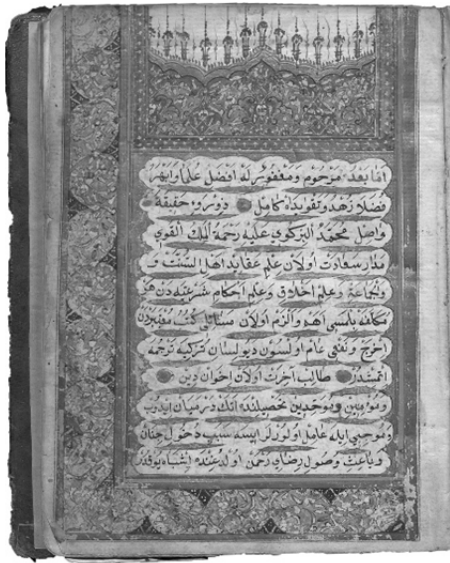 امّا بعد مرحوم ومغفور له افضل علما وابهر
فضلا زهد و تقويده كامل دونرو حقيقة
واصل محمّد البركوي عليه رحمة الملك القوي
مدار سعادت اولان علم عقايد اهل السنّت و
الجماعة وعلم اخلاق وعلم احكام شرعيّه دن هر
مكلّفه بلمسى اهم والزم اولان مسائلى كتب معتبره دن
اخراج ونفعى عام اولسون ديو لسان تركيه ترجمه
اتمشدر طالب آخرت اولان اخوان دين
ومؤمنين وموحدين تحصيلنده اتك درميان ايدوب
وموجبى ايله عامل اولورلر ايسه سبب دخول جنان
وباعث وصول رضاى رحمن اولدغنده اشتباه يوقدر